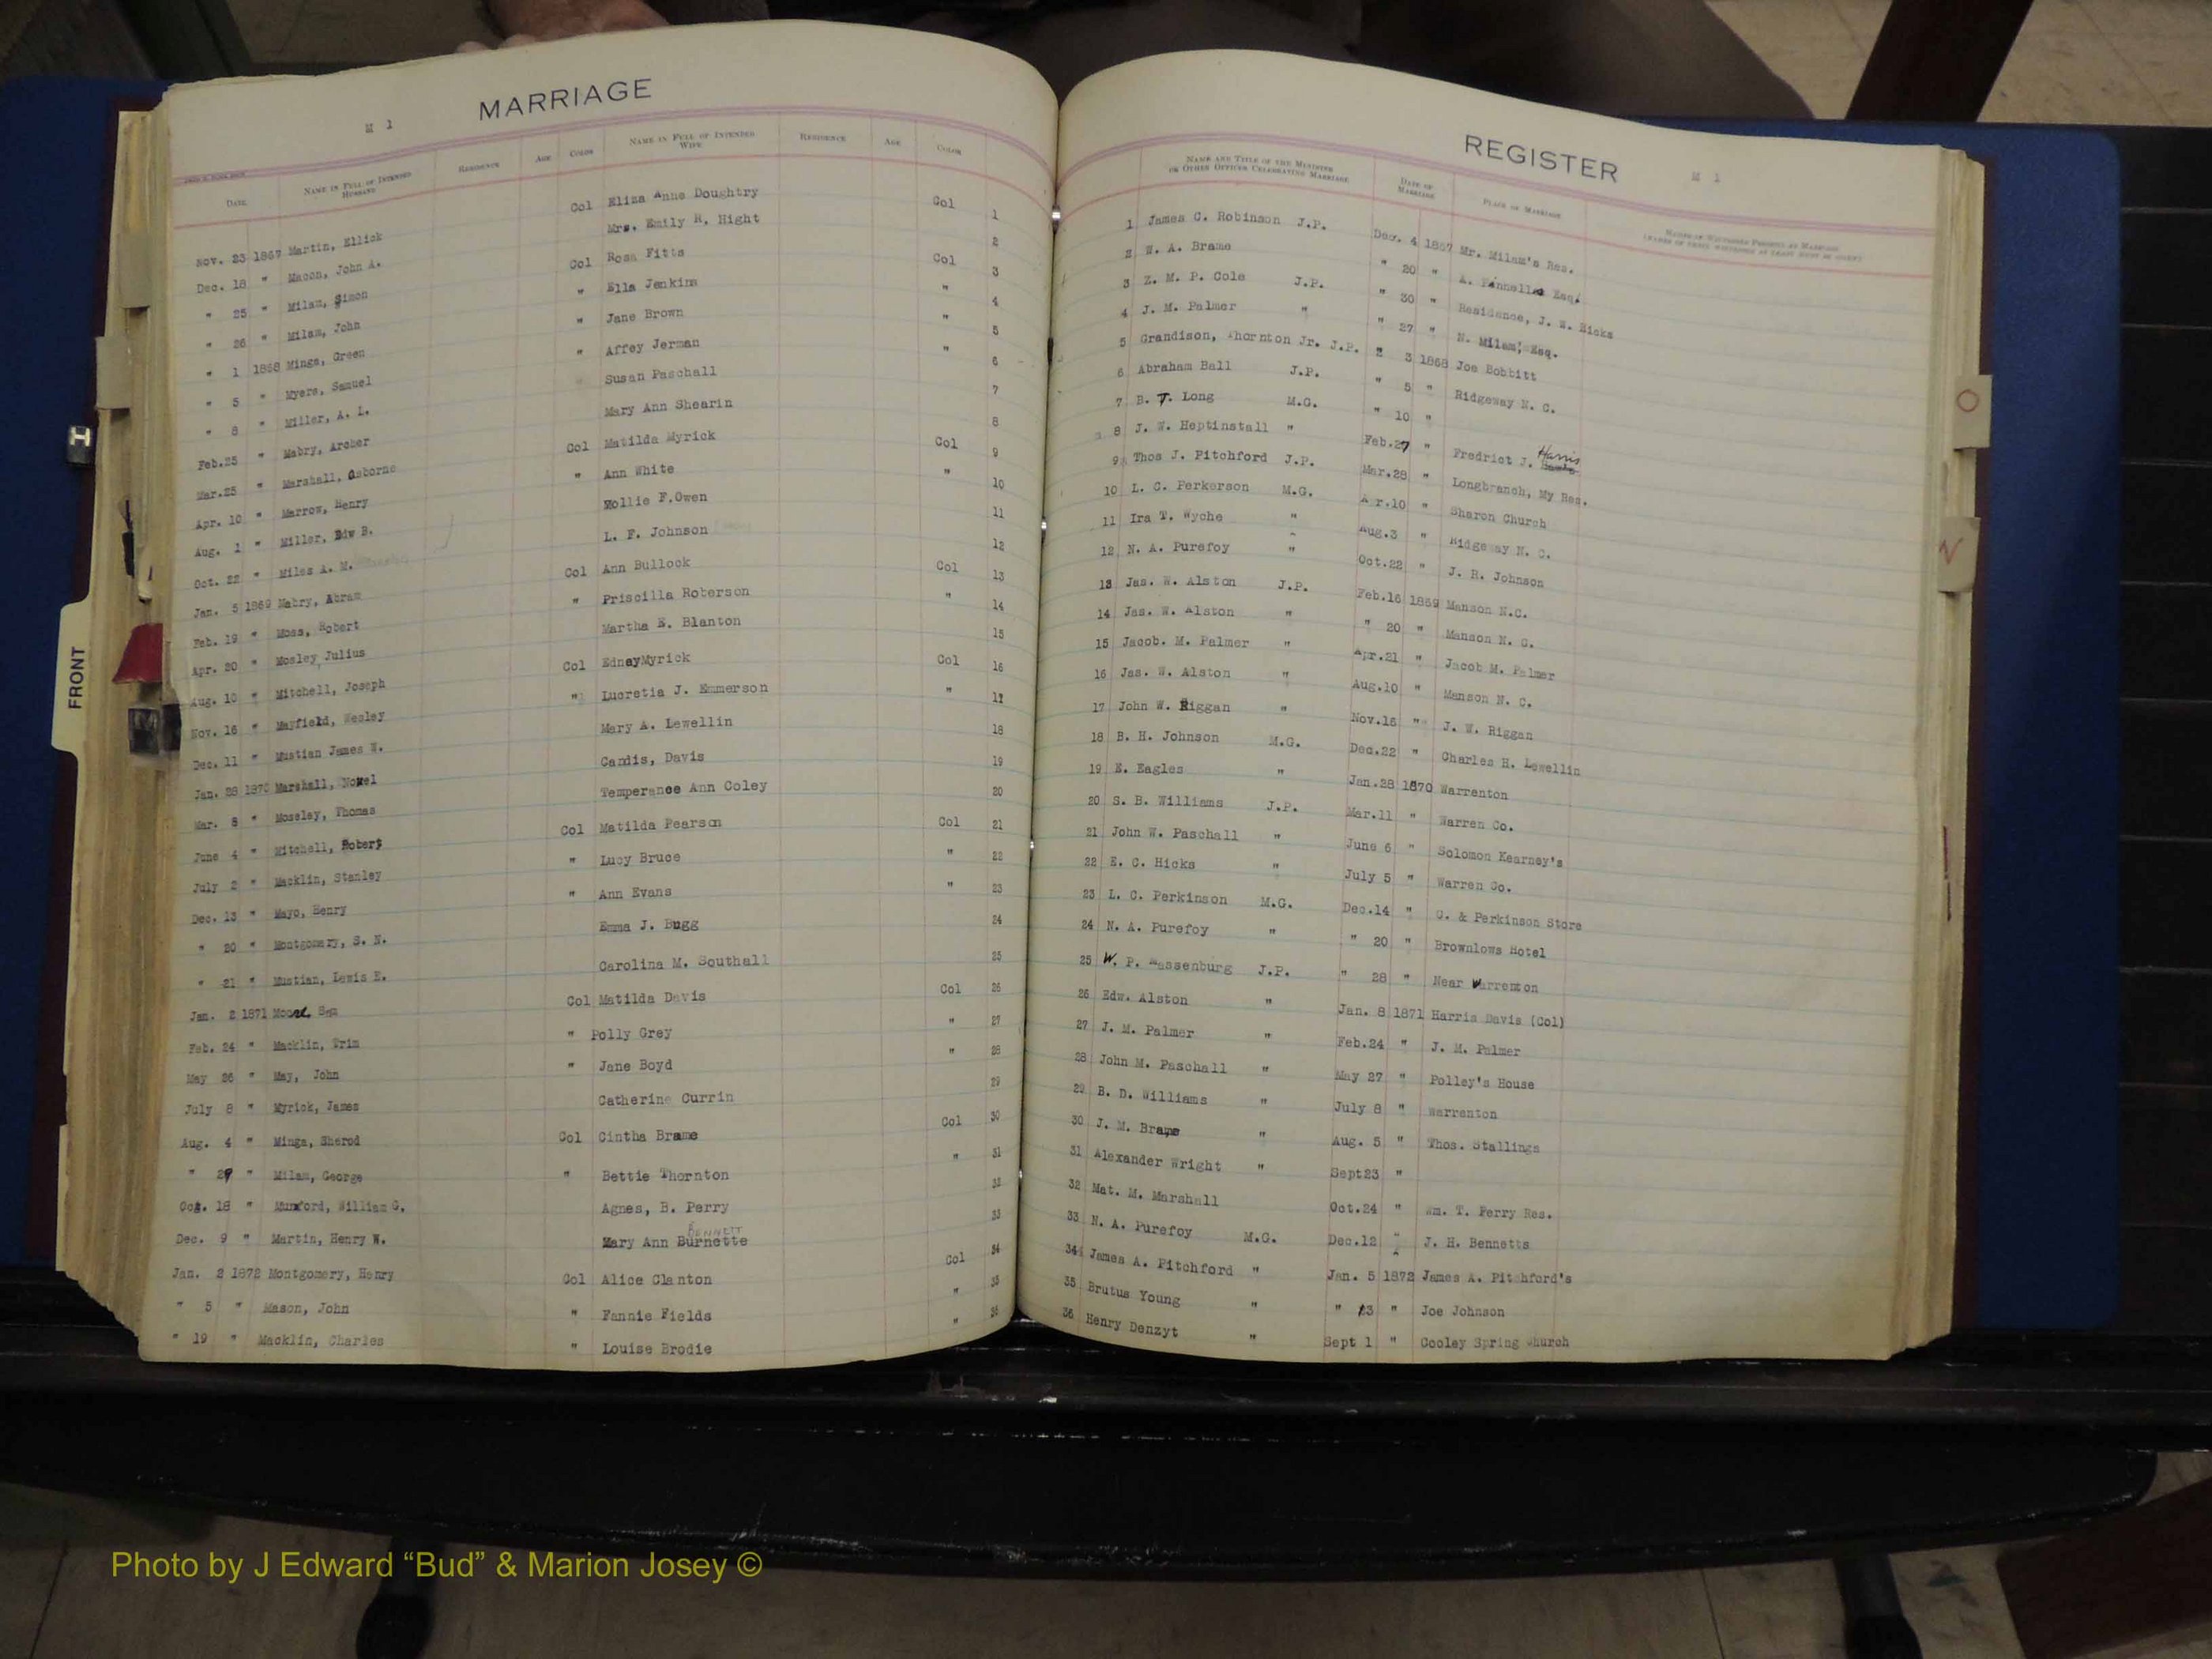 MARRIAGE
M 1
DATE
NAME IN FULL OF INTENDED HUSBAND
RESIDENCE
AGE
COLOR
NAME IN FULL OF INTENDED WIFE
RESIDENCE
AGE
COLOR
Nov. 23 1867 Martin, Ellick Col Eliza Anne Doughtry Col 1
Dec. 18 " Macon, John A. Mrs. Emily R. Hight 2
" 25 " Milam, Simon Col Rosa Fitts Col 3
" 26 " Milam, John " Ella Jenkins " 4
" 1 1868 Minga, Green " Jane Brown " 5
" 5 " Myers, Samuel " Affey Jerman " 6
" 8 " Miller, A. L. Susan Paschall 7
Feb.25 " Mabry, Archer Mary Ann Shearin 8
Mar.25 " Marshall, Osborne Col Matilda Myrick Col 9
Apr. 10 " Marrow, Henry " Ann White " 10
Aug. 1 " Miller, Edw B. Mollie F.Owen 11
Oct. 22 " Miles A. M. L. F. Johnson 12
Jan. 5 1869 Mabry, Abram Col Ann Bullock Col 13
Feb. 19 " Moss, Robert " Priscilla Roberson " 14
Apr. 20 " Mosley Julius Martha E. Blanton 15
Aug. 10 " Mitchell, Joseph Col EdnayMyrick Col 16
Nov. 16 " Mayfield, Wesley " Lucretia J. Emmerson " 17
Dec. 11 " Mustian James W. Mary A. Lewellin 18
Jan. 28 1870 Marshall, Candis, Davis 19
Mar. 8 " Moseley, Thomas Temperance Ann Coley 20
June 4 " Mitchell, Robert Col Matilda Pearson Col 21
July 2 " Macklin, Stanley " Lucy Bruce " 22
Dec. 13 " Mayo, Henry " Ann Evans " 23
" 20 " Montgomary, S. N. Emma J. Bugg 24
" 21 " Mustian, Lewis E. Carolina M. Southall 25
Jan. 2 1871 Ben Col Matilda Davis Col 26
Feb. 24 " Macklin, Trim " Polly Grey " 27
May 26 " May, John " Jane Boyd " 28
July 8 " Myrick, James Catherine Currin 29
Aug. 4 " Minga, Sherod Col Cintha Brame Col 30
" 29 " Milam, George " Bettie Thornton " 31
Oct. 18 " Mumford, William G. Agnes, B. Perry 32
BENNETT
Dec. 9 " Martin, Henry W. Mary Ann Burnette 33
Jan. 2 1872 Montgomery, Henry Col Alice Clanton Col 34
" 5 " Mason, John " Fannie Fields " 35
" 19 " Macklin, Charles " Louise Brodie " 36
REGISTER
M 1
NAME AND TITLE OF THE MINISTER OR OTHER OFFICER CELEBRATING MARRIAGE
DATE OF MARRIAGE
PLACE OF MARRIAGE
1 James C. Robinson J.P. Dec. 4 1867 Mr. Milam's Res.
2 W. A. Brame " 20 " A. Esq.
3 Z. M. P. Cole J.P. " 30 " Residence, J. W. Hicks
4 J. M. Palmer " " 27 " N. Milam, Esq.
5 Grandison, Thornton Jr. J.P. 3 1868 Joe Bobbitt
6 Abraham Ball J.P. " 5 " Ridgeway N. C.
7 B. T. Long M.G. " 10 "
8 J. W. Heptinstall " Feb.27 " Fredrict J. Harris
9 Thos J. Pitchford J.P. Mar.28 " Longbranch, My Res.
10 L. C. Perkerson M.G. Apr.10 " Sharon Church
11 Ira T. Wyche " Aug.3 " Ridgeway N. C.
12 N. A. Purefoy " Oct.22 " J. R. Johnson
13 Jas. W. Alston J.P. Feb.16 1869 Manson N.C.
14 Jas. W. Alston " " 20 " Manson N. C.
15 Jacob. M. Palmer " Apr.21 " Jacob M. Palmer
16 Jas. W. Alston " Aug.10 " Manson N. C.
17 John W. Riggan " Nov.16 " J. W. Riggan
18 B. H. Johnson M.G. Dec.22 " Charles H. Lewellin
19 E. Eagles " Jan.28 1870 Warrenton
20 S. B. Williams J.P. Mar.11 " Warren Co.
21 John W. Paschall " June 6 " Solomon Kearney's
22 E. C. Hicks " July 5 " Warren Co.
23 L. C. Perkinson M.G. Dec.14 " & Perkinson Store
24 N. A. Purefoy " " 20 " Brownlows Hotel
25 W. P. Massenburg J.P. " 28 " Near Warrenton
26 Edw. Alston " Jan. 8 1871 Harris Davis (Col)
27 J. M. Palmer " Feb.24 " J. M. Palmer
28 John M. Paschall " May 27 " Polley's House
29 B. D. Williams " July 8 " Warrenton
30 J. M. Brame " Aug. 5 " Thos. Stallings
31 Alexander Wright " Sept23 "
32 Mat. M. Marshall Oct.24 " Wm. T. Perry Res.
33 N. A. Purefoy M.G. Dec.12 " J. H. Bennetts
34 James A. Pitchford " Jan. 5 1872 James A. Pitchford's
35 Brutus Young " " 13 " Joe Johnson
36 Henry Denzyt " Sept 1 " Cooley Spring Church
FRONT
O
Photo by J Edward “Bud” & Marion Josey ©